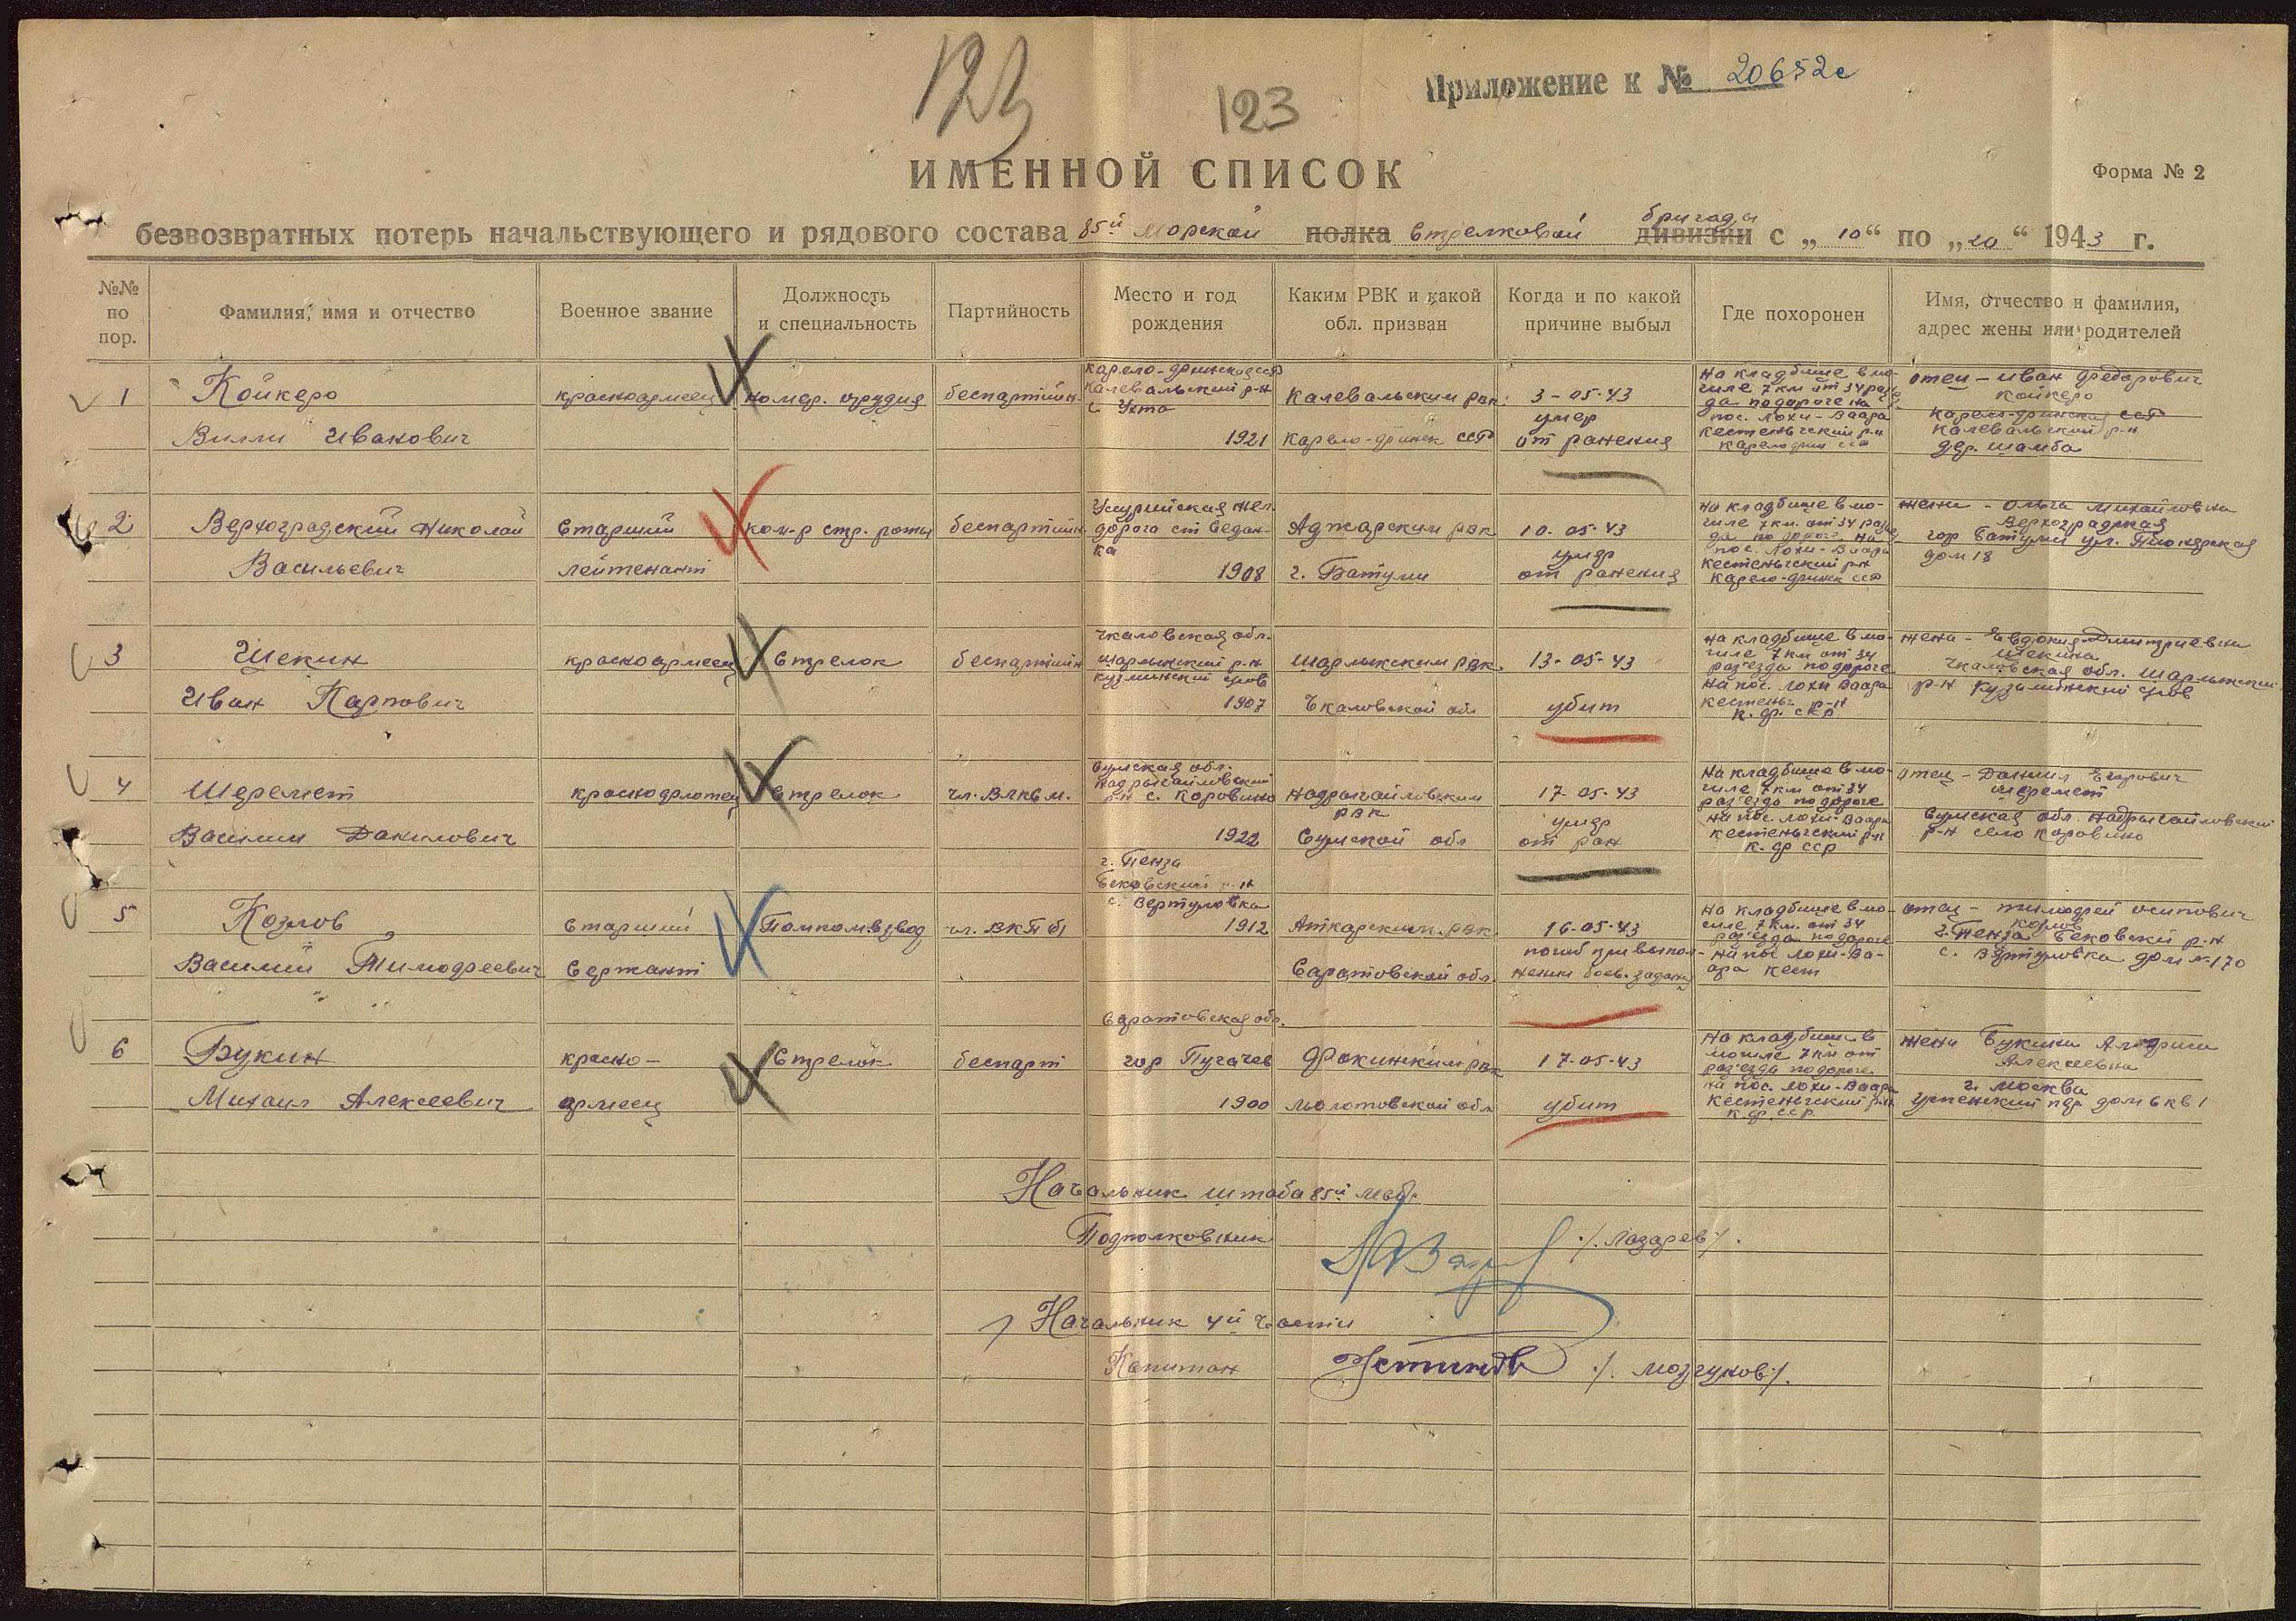 123
123
Приложение к № 20652с
ИМЕННОЙ СПИСОК
Форма № 2
безвозвратных потерь начальствующего и рядового состава 85й морской полка стрелковой бригады дивизии с „10“ по „20“ 1943 г.
№№ по пор.
Фамилия, имя и отчество
Военное звание
Должность и специальность
Партийность
Место и год рождения
Каким РВК и какой обл. призван
Когда и по какой причине выбыл
Где похоронен
Имя, отчество и фамилия, адрес жены или родителей
1
Койкеро
Вилли Иванович
красноармеец
номер. орудия
беспартийн.
Карело-финская ССР
Калевальский р-н
с. Ухта
1921
Калевальским рвк.
Карело-финск ССР
3-05-43
умер
от ранения
На кладбище в мо-
гиле 7 км от 34 разъез-
да по дороге на
пос. Лохи-Ваара
Кестеньгский р-н
Карело фин ССР
отец - Иван Федорович
Койкеро
Карело-финская ССР
Калевальский р-н
дер. Шамба
2
Верхоградский Николай
Васильевич
Старший
лейтенант
ком-р стр. роты
беспартийн
Уссурийская жел.
дорога ст Седан-
ка
1908
Аджарским рвк
г. Батуми
10-05-43
умер
от ранения
На кладбище в мо-
гиле 7 км. от 34 разъез-
да по дороге на
пос. Лохи-Ваара
Кестеньгский р-н
Карело-финск ССР
жена - Ольга Михайловна
Верхоградская
гор Батуми ул. Пионерская
дом 18
3
Щекин
Иван Карпович
красноармеец
Стрелок
беспартийн
Чкаловская обл.
Шарлыкский р-н
1907
Шарлыкским рвк
Чкаловской обл
13-05-43
убит
На кладбище в мо-
гиле 7 км от 34
раз'езда по дороге
на пос. Лохи Ваара
Кестеньг р-н
К. ф. ССР
жена - Евдокия Дмитриевна
Щекина
Чкаловская обл. Шарлыкский
р-н
4
Шеремет
Василий Данилович
краснофлотец
Стрелок
чл. ВЛКСМ.
Сумская обл.
Надрыгайловский
р-н с. Коровино
1922
Надрыгайловским
рвк
Сумской обл
17-05-43
умер
от ран
На кладбище в мо-
гиле 7 км от 34
раз'езда по дороге
на пос. Лохи-Ваара
Кестеньгский р-н
К. ф ССР
отец - Данил Егорович
Шеремет
Сумская обл. Надрыгайловский
р-н село Коровино
5
Козлов
Василий Тимофеевич
Старший
Сержант
Помком. взвод
чл. ВКП б)
г. Пенза
Бековский р-н
с. Вертуновка
1912
Аткарским. рвк
Саратовской обл.
16-05-43
погиб при выпол-
нении боев. задания
На кладбище в мо-
гиле 7 км. от 34
раз'езда по дороге
на пос Лохи-Ва-
ара Кест
отец - Тимофей Осипович
Козлов
г. Пенза Бековский р-н
с. Вертуновка дом №170
6
Букин
Михаил Алексеевич
красно-
армеец
Стрелок
беспарт
Саратовская обл.
гор Пугачев
1900
Фокинским рвк
Молотовской обл
17-05-43
убит
На кладбище в
могиле 7 км от
раз'езда по дороге
на пос. Лохи-Ваара
Кестеньгский р-н
К ф ССР
жена Букина
Алексеевна
г. Москва
дом 6 кв 1
Начальник штаба 85й мсбр.
Подполковник
/. Лазарев /.
Начальник 4й части
Капитан
/. Мозгунов /.